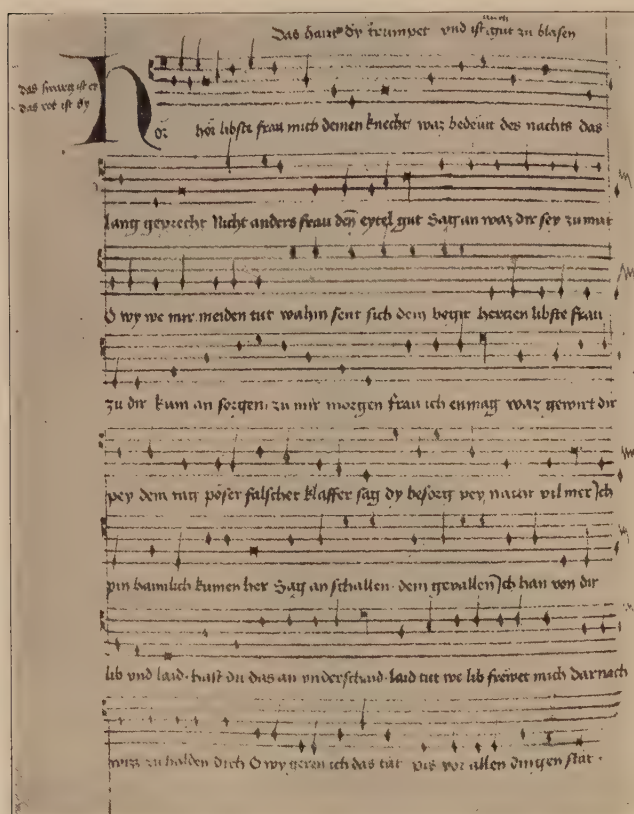 Das haizt dy trumpet und ist auch gut zu blasen
das swarcz ist er
das rot ist dy
Hör hör libste frau mich deinen knecht waz bedeut des nachts das
lang geprecht Nicht anders frau den eytel gut Sag an waz dir sey zu mut
O wy we mir meiden tut wahin sent sich dein begir herczen libste frau
zu dir kum an sorgen zu mir morgen frau ich enmag waz gewirt dir
pey dem tag pöser falscher klaffer sag dy besorg pey nacht vil mer Ich
pin haimlich kumen her Sag an schallen dem gevallen Ich han von dir
lib vnd laid hast du das an vnderschaid laid tut we lib frewet mich darnach
zu halden dich O wy geren ich das tät pis vor allen dingen stät